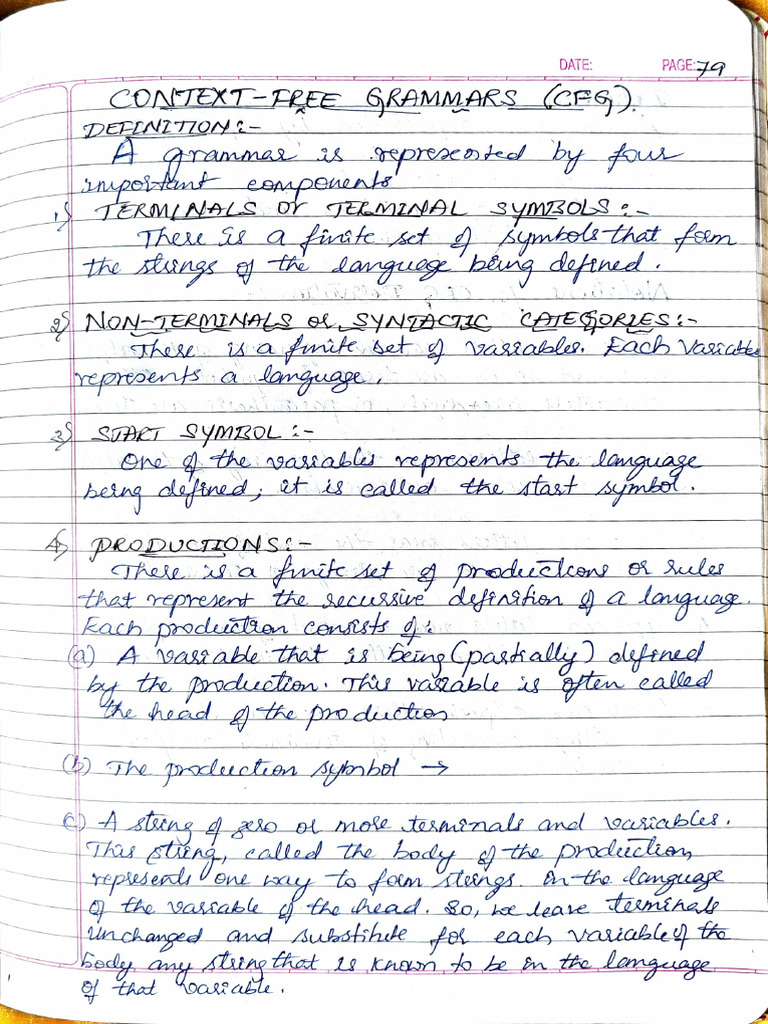 DATE: PAGE: 79
CONTEXT-FREE GRAMMARS (CFG).
DEFINITION:-
A grammar is represented by four
important components
1) TERMINALS or TERMINAL SYMBOLS:-
There is a finite set of symbols that form
the strings of the language being defined.
2) NON-TERMINALS or SYNTACTIC CATEGORIES:-
There is a finite set of variables. Each variable
represents a language.
3) START SYMBOL:-
One of the variables represents the language
being defined; it is called the start symbol.
4) PRODUCTIONS:-
There is a finite set of productions or rules
that represent the recursive definition of a language.
Each production consists of:
(a) A variable that is being (partially) defined
by the production. This variable is often called
the head of the production
(b) The production symbol →
c) A string of zero or more terminals and variables.
This string, called the body of the production,
represents one way to form strings in the language
of the variable of the head. So, we leave terminals
unchanged and substitute for each variable of the
body any string that is known to be in the language
of that variable.